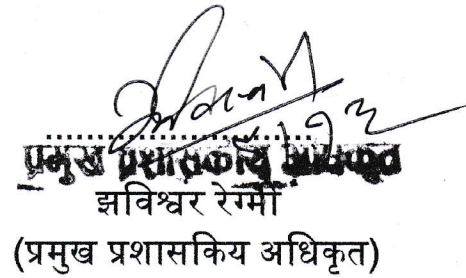 प्रमुख प्रशासकीय अधिकृत
झविश्वर रेग्मी
(प्रमुख प्रशासकिय अधिकृत)